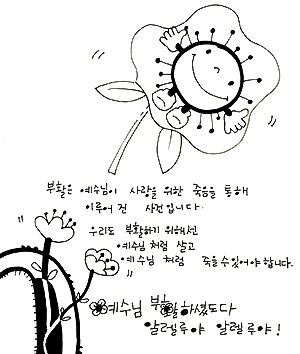 부활은 예수님이 사랑을 위한 죽음을 통해
이루어 진 사건입니다.
우리도 부활하기 위해선
예수님 처럼 살고
예수님 처럼 죽을수있어야합니다.
예수님 부활하셨도다
알렐루야 알렐루야!